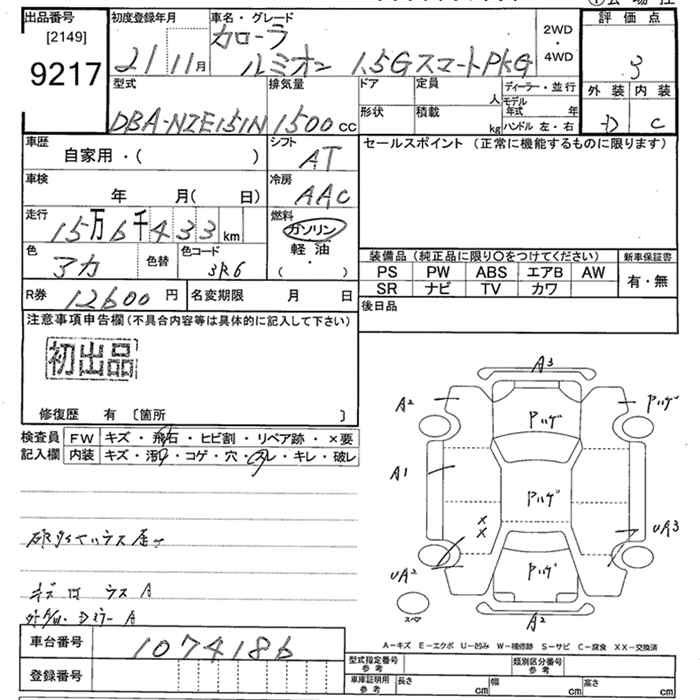 出品番号
[2149]
9217
初度登録年月
21 11月
車名・グレード
カローラ
ルミオン 1.5GスマートPKG
2WD
・
4WD
評価点
3
外装 内装
D C
型式
DBA-NZE151N
排気量
1500cc
ドア
形状
定員
人
積載
kg
ディーラー・並行
モデル年式 年
ハンドル 左・右
車歴
自家用・( )
シフト
AT
セールスポイント (正常に機能するものに限ります)
車検
年 月( 日)
冷房
AAC
走行
15万6千433km
燃料
ガソリン
軽油
・
( )
色
アカ
色替
色コード
3R6
装備品 (純正品に限り〇をつけてください)
新車保証書
PS PW ABS エアB AW
有・無
SR ナビ TV カワ
R券 12600円
名変期限 月 日
後日品
注意事項申告欄 (不具合内容等は具体的に記入して下さい)
初出品
修復歴 有 〔箇所 〕
検査員記入欄
FW キズ・飛石・ヒビ割・リペア跡・×要
内装 キズ・汚れ・コゲ・穴・スレ・キレ・破レ
A3
A2
ハゲ
ハゲ
A1
ハゲ
X
X
UA3
UA2
ハゲ
スペア
A2
A-キズ E-エクボ U-凹み W-補修跡 S-サビ C-腐食 XX-交換済
車台番号
1074186
登録番号
型式指定番号 参考
類別区分番号 参考
車庫証明用 参考
長さ cm
幅 cm
高さ cm